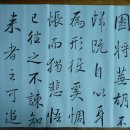 園將蕪胡不
歸既自以心
為形役奚惆
悵而獨悲悟
已往之不諫知
來者之可追